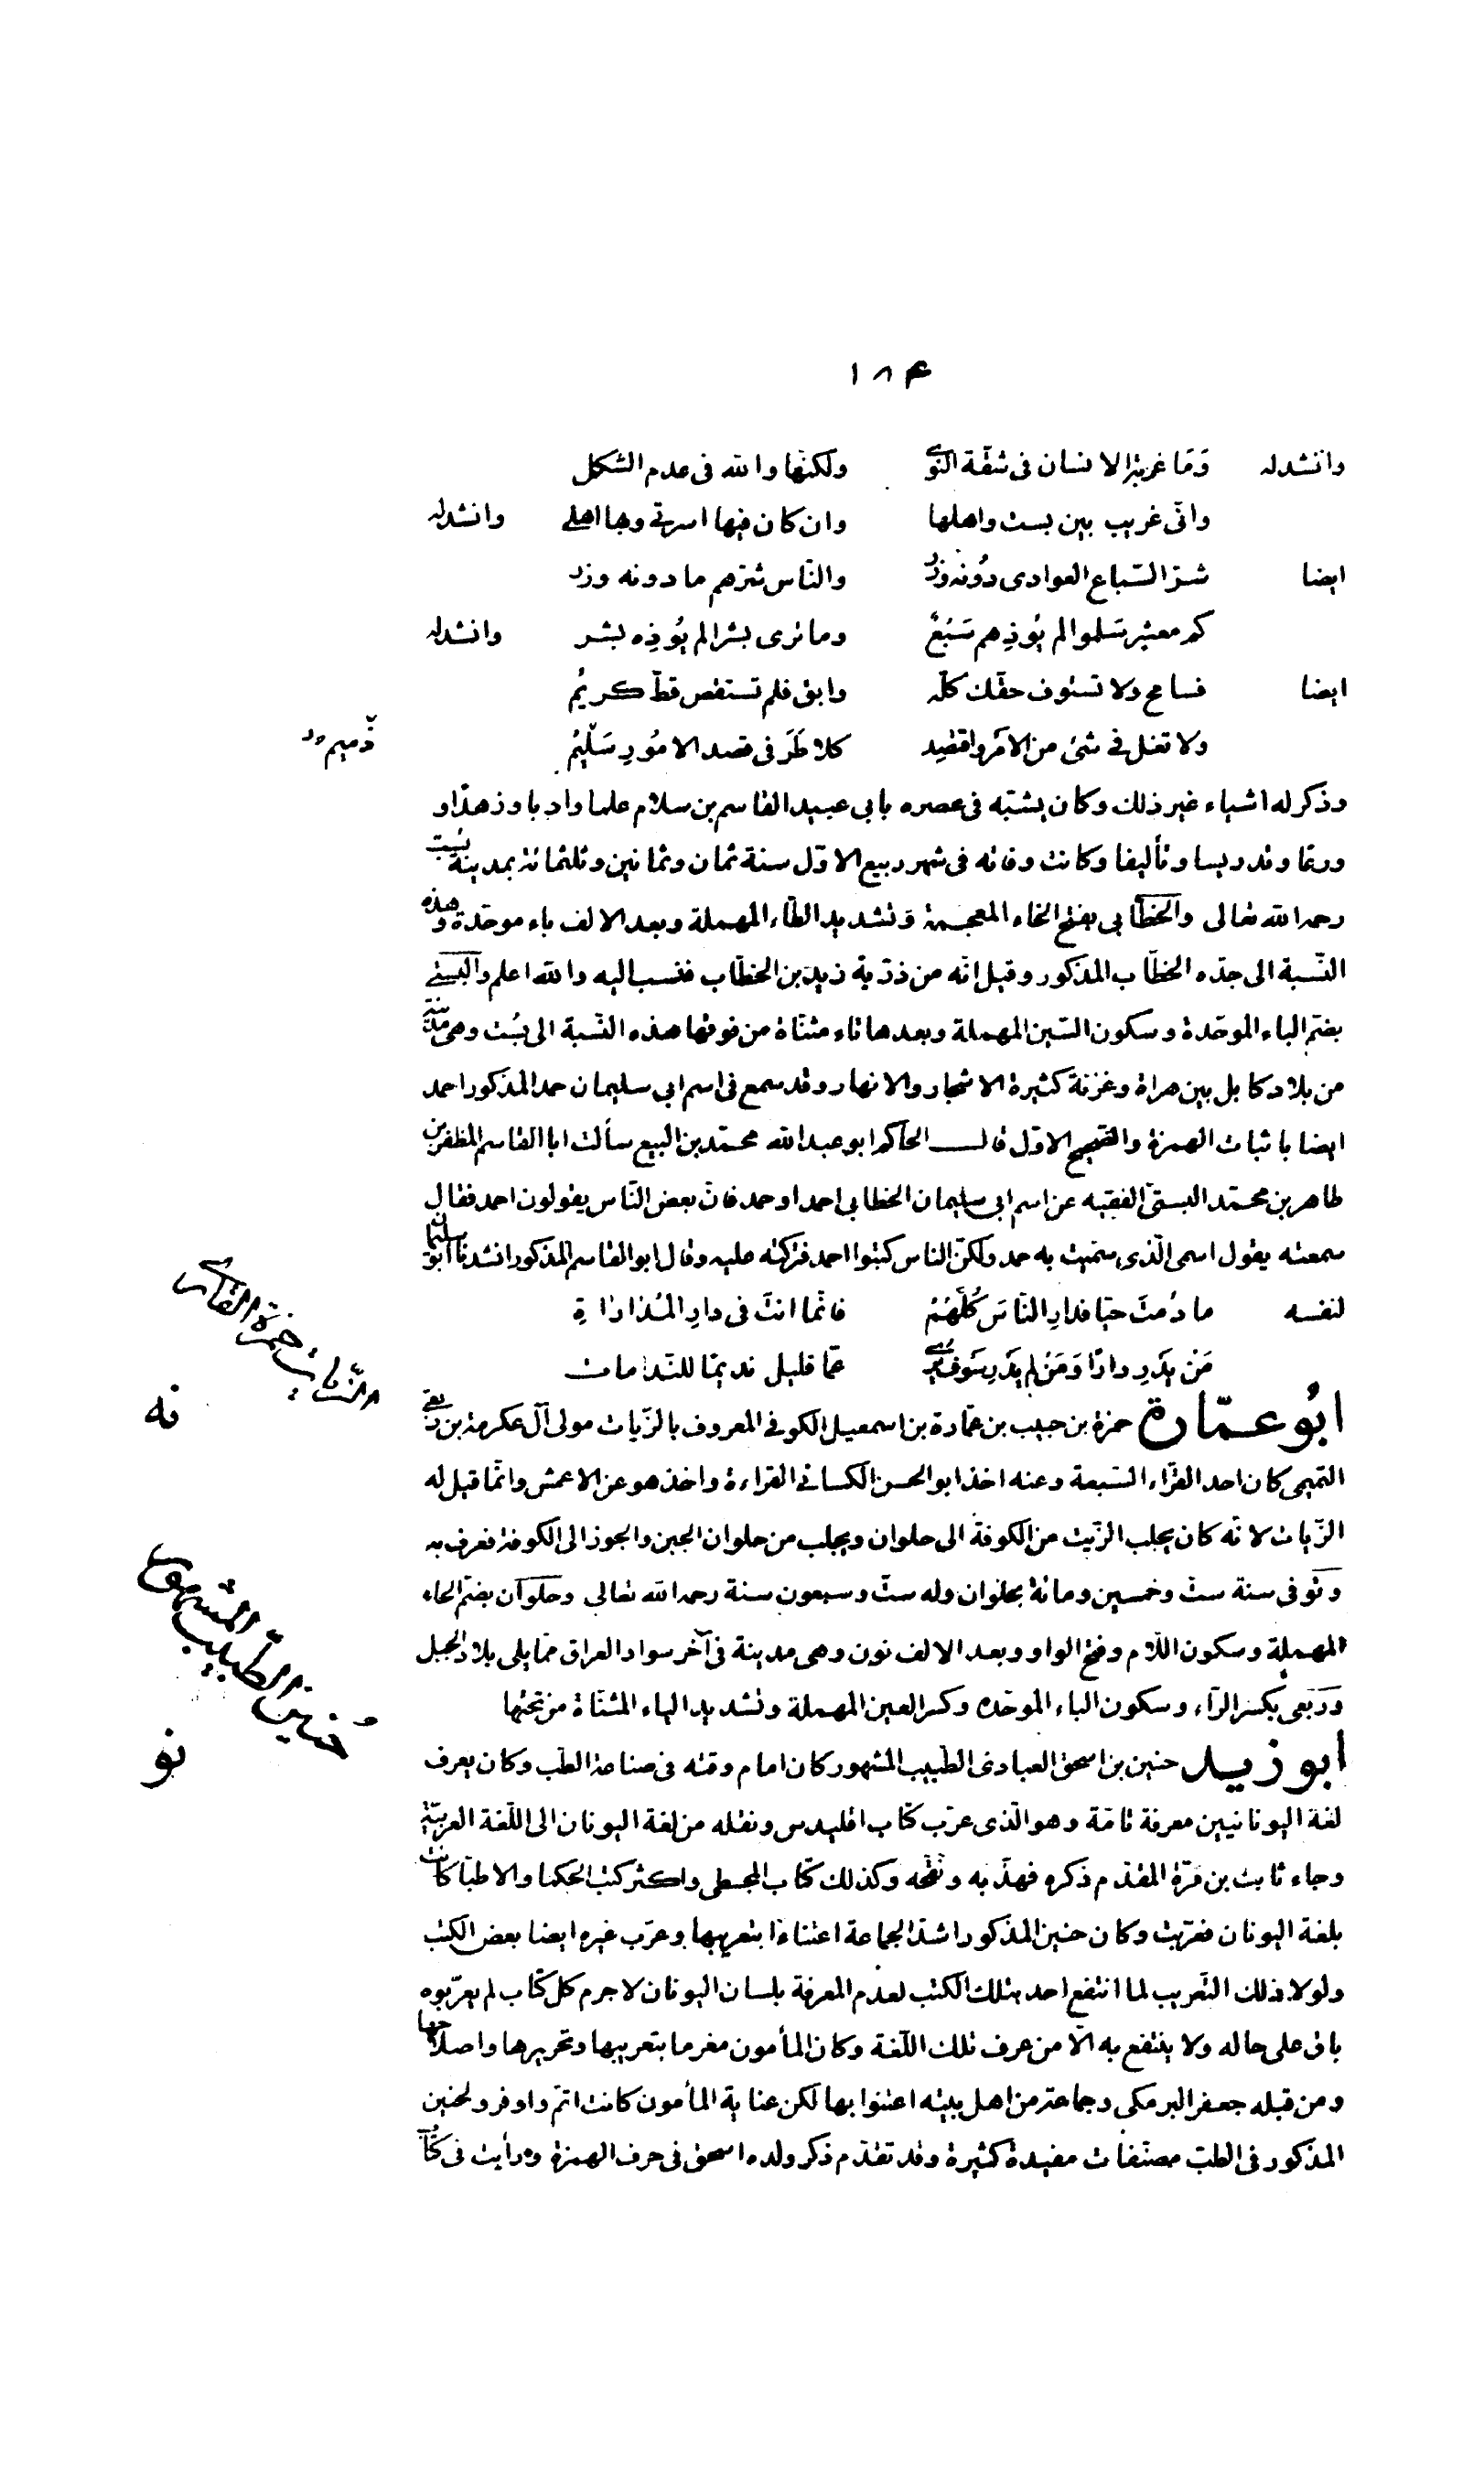 ١٨۴
وانشد له وَمَا غربة الانسان فى شقّة النّوى ولكنّها والله فى عدم الشكل
وانّى غريب بين بست واهلها وان كان فيها اسرتى وبها اهلى وانشد له
ايضا شرّ السّباع العوادى دُونه وزرٌ والنّاس شرّهم ما دونه وزر
كم معشر سَلموا لم يُوذِهم سَبُعٌ وما نرى بشرا لم يُوذِه بشر وانشد له
ايضا فسامح ولا تستوف حقّك كلّه وابق فلم تستقص قطّ كريمُ
ولا تغل فى شئ من الامر واقتصِد كلا طَرَفى قصد الامُورِ سَلِيمُ
ذميم ور
وذكر له اشياء غير ذلك وكان يشبّه فى عصره بابى عبيد القاسم بن سلام علما وادبا وزهدًا و
ورعا وتدريسا وتأليفا وكانت وفاته فى شهر ربيع الاوّل سنة ثمان وثمانين وثلثمائة بمدينة بُست
رحمه الله تعالى والخطّابى بفتح الخاء المعجمة وتشديد الطّاء المهملة وبعد الالف باء موحّدة وهذه
النّسبة الى جدّه الخطّاب المذكور وقيل انّه من ذرّية زيد بن الخطّاب فنسب اليه والله اعلم والبستى
بضمّ الباء الموحّدة وسكون السّين المهملة وبعدها تاء مثنّاة من فوقها هذه النّسبة الى بُست وهى مدينة
من بلاد كابل بين هراة وغزنة كثيرة الاشجار والانهار وقد سمع فى اسم ابى سليمان حمد المذكور احمد
ايضا باثبات الهمزة والصّحيح الاوّل قال الحاكم ابو عبد الله محمّد بن البيع سألت ابا القاسم المظفر بن
طاهر بن محمّد البستىّ الفقيه عن اسم ابى سليمان الخطابى احمد او حمد فانّ بعض النّاس يقولون احمد فقال
سمعته يقول اسمى الّذى سمّيت به حمد ولكنّ الناس كتبوا احمد فتركته عليه وقال ابو القاسم المذكور انشدنا ابو سليمان
لنفسه ما دُمتَ حيّا فدارِ النّاسَ كُلّهُمْ فانّما انتَ فى دارِ المُداراةِ
مَنْ يَدرِ دارًا وَمَنْ لم يَدرِ سَوفَ يُرى عمّا قليل نديمًا للنّدامات
ابُو عمّارة حمزة بن حبيب بن عمّارة بن اسمعيل الكوفى المعروف بالزّيات مولى آل عكرمة بن ربعى
الزّيات حمزة القارى
نه
التميمى كان احد القرّاء السّبعة وعنه اخذ ابو الحسن الكسائى القراءة واخذ هو عن الاعمش وانّما قيل له
الزّيات لانّه كان يجلب الزّيت من الكوفة الى حلوان ويجلب من حلوان الجبن والجوز الى الكوفة فعرف به
وتوفى سنة ستّ وخمسين ومائة بحلوان وله ستّ وسبعون سنة رحمه الله تعالى وحلوان بضمّ الحاء
المهملة وسكون اللّام وفتح الواو وبعد الالف نون وهى مدينة فى آخر سواد العراق ممّا يلى بلاد الجبل
ورَبعى بكسر الرّاء وسكون الباء الموحّده وكسر العين المهملة وتشديد الياء المثنّاة من تحتها
ابو زيد حنين بن اسحق العبادى الطّبيب المشهور كان امام وقته فى صناعة الطّب وكان يعرف
حُنين الطّبيب المشهور
نو
لغة اليونانيين معرفة تامّة وهو الّذى عرّب كتاب اقليدس ونقله من لغة اليونان الى اللّغة العربيّة
وجاء ثابت بن قرّة المقدّم ذكره فهذّبه ونقّحه وكذلك كتاب المجسطى واكثر كتب الحكما والاطبّا كانت
بلغة اليونان فعرّبت وكان حنين المذكور اشدّ الجماعة اعتناءًا بتعريبها وعرّب غيره ايضا بعض الكتب
ولولا ذلك التّعريب لما انتفع احد بتلك الكتب لعدم المعرفة بلسان اليونان لا جرم كل كتاب لم يعرّبوه
باق على حاله ولا ينتفع به الّا من عرف تلك اللّغة وكان المأمون مغرما بتعريبها وتحريرها واصلاحها
ومن قبله جعفر البرمكى وجماعة من اهل بيته اعتنوا بها لكن عناية المأمون كانت اتمّ واوفر ولحنين
المذكور فى الطبّ مصنّفات مفيدة كثيرة وقد تقدّم ذكر ولده اسحق فى حرف الهمزة ورأيت فى كتاب